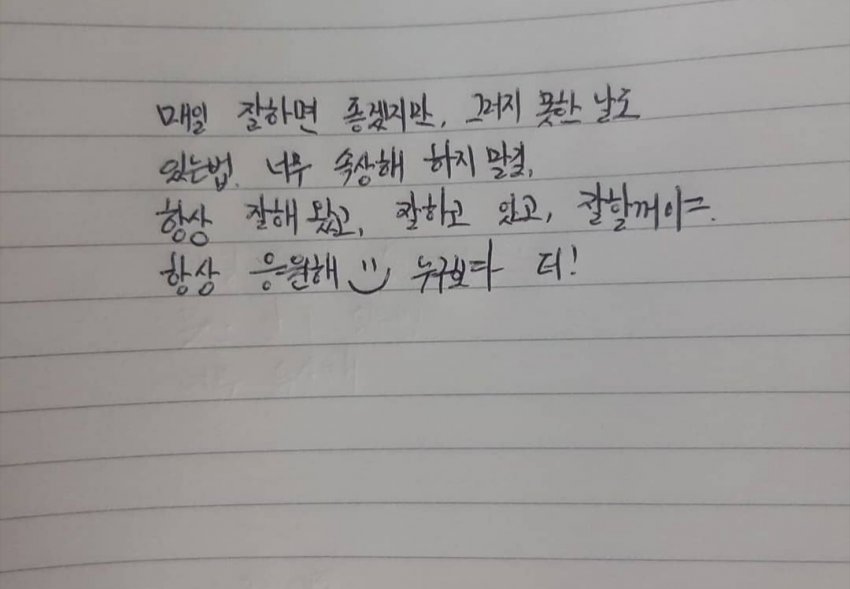 매일 잘하면 좋겠지만, 그러지 못한 날도
있는법. 너무 속상해 하지 말길,
항상 잘해 왔고, 잘하고 있고, 잘할꺼야.
항상 응원해 누구보다 더!